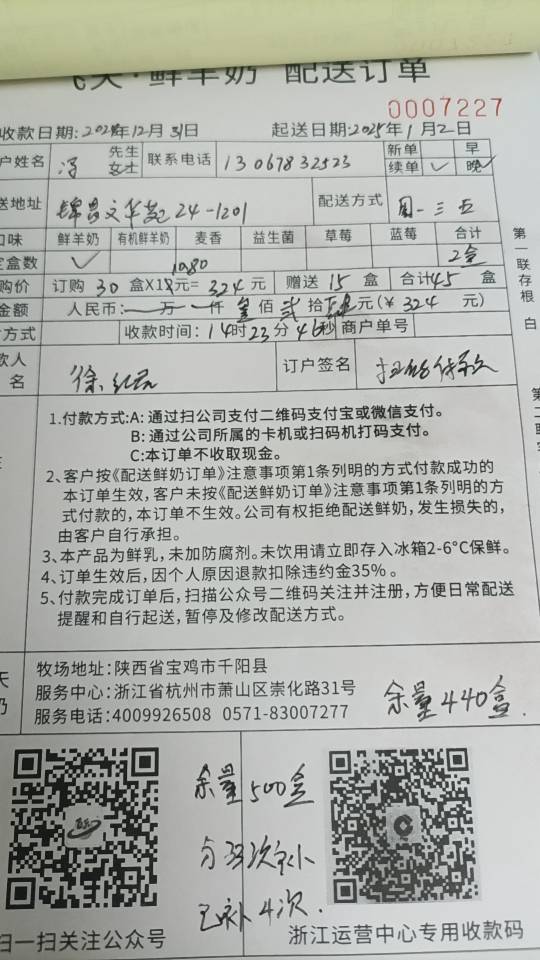 天·鲜羊奶 配送订单
0007227
收款日期:2024年12月31日 起送日期:2025年1月2日
户姓名 冯 先生 女士 联系电话 13067832523 新单 早
续单 ✓ 晚 ✓
送地址 锦昌文华苑24-1201 配送方式 周一三五
口味 鲜羊奶 有机鲜羊奶 麦香 益生菌 草莓 蓝莓 合计
定盒数 ✓ 2盒
购价 订购 30 盒X 10.80 元= 324 元 赠送 15 盒 合计 45 盒
金额 人民币: 万 仟 叁佰 贰拾 肆元(¥ 324 元)
方式 收款时间: 14时23分46秒 商户单号
款人
名 徐 订户签名 扫码付款
第一联存根 白
1.付款方式:A: 通过扫公司支付二维码支付宝或微信支付。
B: 通过公司所属的卡机或扫码机打码支付。
C:本订单不收取现金。
2、客户按《配送鲜奶订单》注意事项第1条列明的方式付款成功的
本订单生效,客户未按《配送鲜奶订单》注意事项第1条列明的方
式付款的,本订单不生效。公司有权拒绝配送鲜奶,发生损失的,
由客户自行承担。
3、本产品为鲜乳,未加防腐剂。未饮用请立即存入冰箱2-6°C保鲜。
4、订单生效后,因个人原因退款扣除违约金35%。
5、付款完成订单后,扫描公众号二维码关注并注册,方便日常配送
提醒和自行起送,暂停及修改配送方式。
牧场地址:陕西省宝鸡市千阳县
服务中心:浙江省杭州市萧山区崇化路31号
服务电话:4009926508 0571-83007277
余量440盒.
余量500盒
分33次补
已补4次.
扫一扫关注公众号
浙江运营中心专用收款码